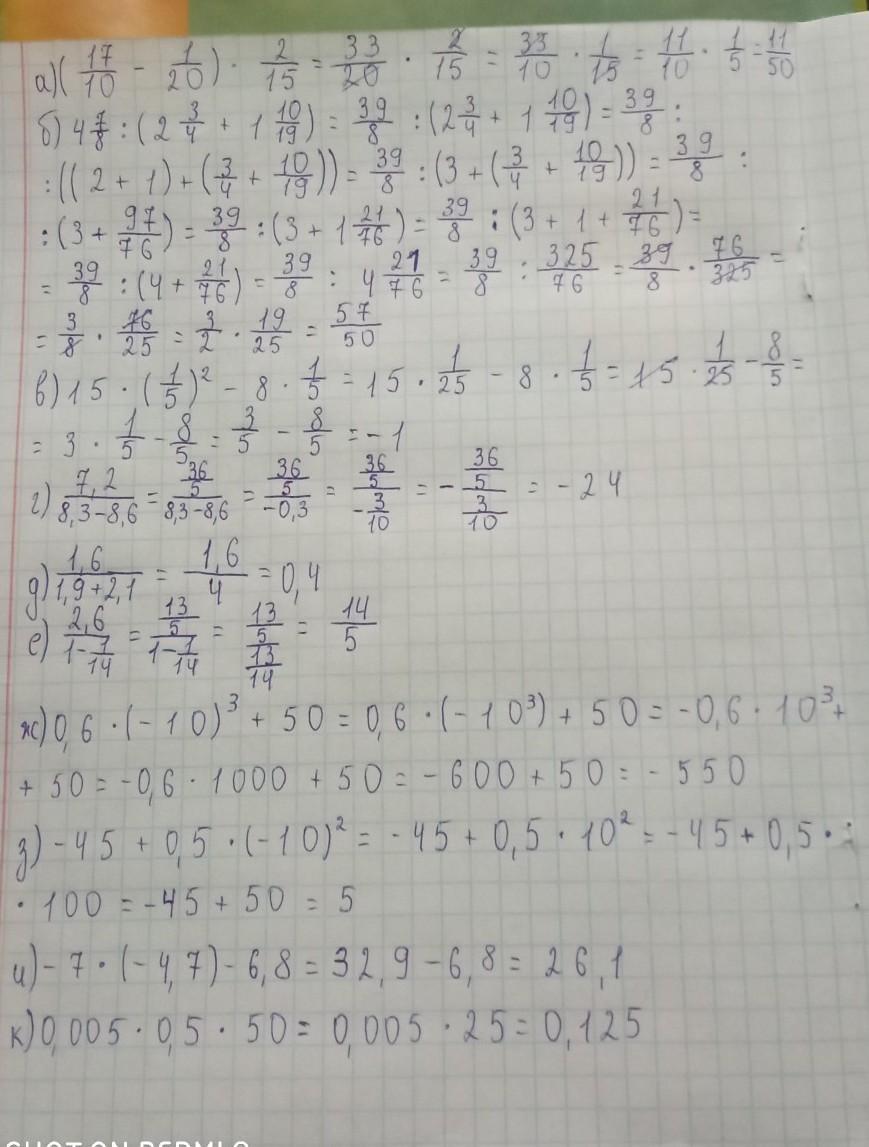 а) (17/10 - 1/20) · 2/15 = 33/20 · 2/15 = 33/10 · 1/15 = 11/10 · 1/5 = 11/50
б) 4 7/8 : (2 3/4 + 1 10/19) = 39/8 : (2 3/4 + 1 10/19) = 39/8 :
: ((2 + 1) + (3/4 + 10/19)) = 39/8 : (3 + (3/4 + 10/19)) = 39/8 :
: (3 + 97/76) = 39/8 : (3 + 1 21/76) = 39/8 : (3 + 1 + 21/76) =
= 39/8 : (4 + 21/76) = 39/8 : 4 21/76 = 39/8 : 325/76 = 39/8 · 76/325 =
= 3/8 · 76/25 = 3/2 · 19/25 = 57/50
в) 15 · (1/5)² - 8 · 1/5 = 15 · 1/25 - 8 · 1/5 = 15 · 1/25 - 8/5 =
= 3 · 1/5 - 8/5 = 3/5 - 8/5 = -1
г) 7,2/(8,3-8,6) = (36/5)/(8,3-8,6) = (36/5)/(-0,3) = (36/5)/(-3/10) = - (36/5)/(3/10) = -24
д) 1,6/(1,9+2,1) = 1,6/4 = 0,4
е) 2,6/(1-1/14) = (13/5)/(1-1/14) = (13/5)/(13/14) = 14/5
ж) 0,6 · (-10)³ + 50 = 0,6 · (-10³) + 50 = -0,6 · 10³ +
+ 50 = -0,6 · 1000 + 50 = -600 + 50 = -550
з) -45 + 0,5 · (-10)² = -45 + 0,5 · 10² = -45 + 0,5 ·
· 100 = -45 + 50 = 5
и) -7 · (-4,7) - 6,8 = 32,9 - 6,8 = 26,1
к) 0,005 · 0,5 · 50 = 0,005 · 25 = 0,125